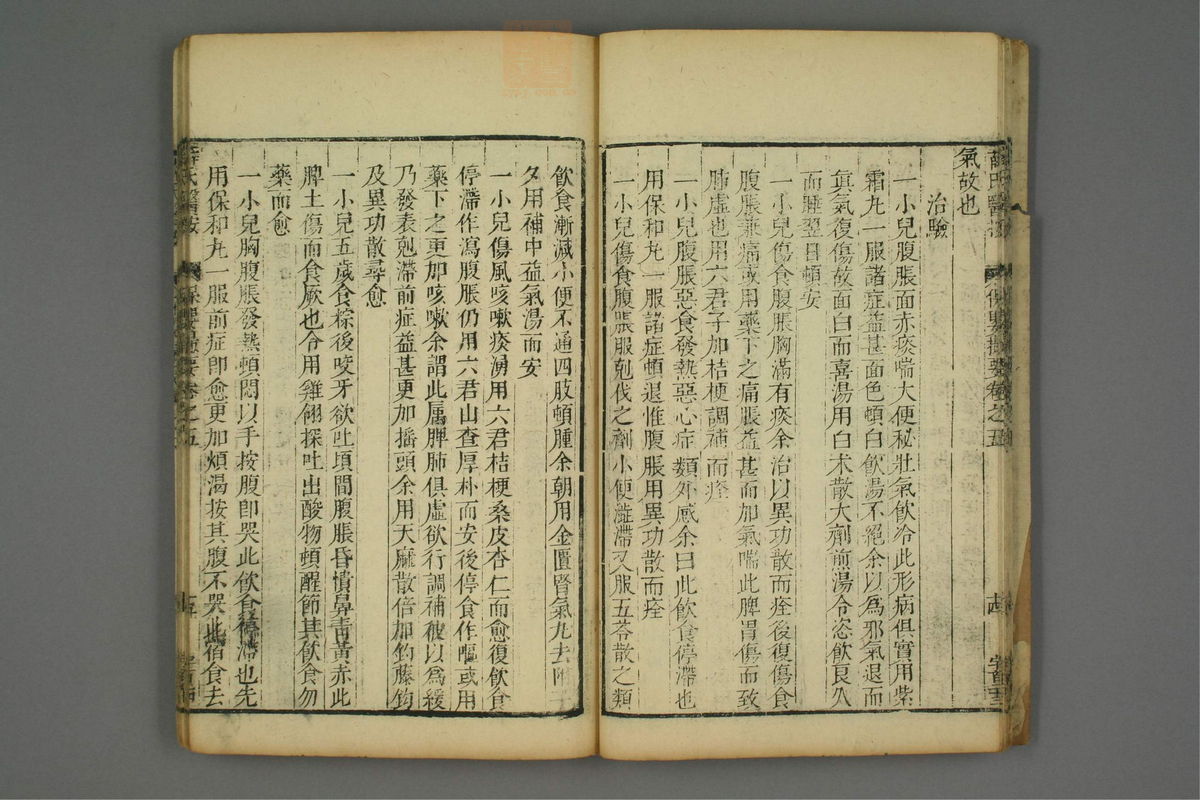 氣故也
治驗
一小兒腹脹面赤痰喘大便秘壯氣飲冷此形病俱實用紫
霜丸一服諸症益甚面色頓白飲湯不絕余以爲邪氣退而
眞氣復傷故面白而喜湯用白术散大劑煎湯令恣飲良久
而睡翌日頓安
一小兒傷食腹脹胸滿有痰余治以異功散而痊後復傷食
腹脹兼痛或用藥下之痛脹益甚而加氣喘此脾胃傷而致
肺虛也用六君子加桔梗調補而痊
一小兒腹脹惡食發熱惡心症類外感余曰此飲食停滯也
用保和丸一服諸症頓退惟腹脹用異功散而痊
一小兒傷食腹脹服剋伐之劑小便澁滯又服五苓散之類
飲食漸減小便不通四肢頓腫余朝用金匱腎氣丸去附子
夕用補中益氣湯而安
一小兒傷風咳嗽痰湧用六君桔梗桑皮杏仁而愈復飲食
停滯作瀉腹脹仍用六君山查厚朴而安後停食作嘔或用
藥下之更加咳嗽余謂此屬脾肺俱虛欲行調補彼以爲緩
乃發表剋滯前症益甚更加搖頭余用天麻散倍加鈎藤鈎
及異功散尋愈
一小兒五歲食粽後咬牙欲吐頃間腹脹昏憒鼻青黃赤此
脾土傷而食厥也令用雞翎探吐出酸物頓醒節其飲食勿
藥而愈
一小兒胸腹脹發熱頓悶以手按腹卽哭此飲食停滯也先
用保和丸一服前症卽愈更加煩渴按其腹不哭此宿食去
薛氏醫按 保嬰撮要卷之五